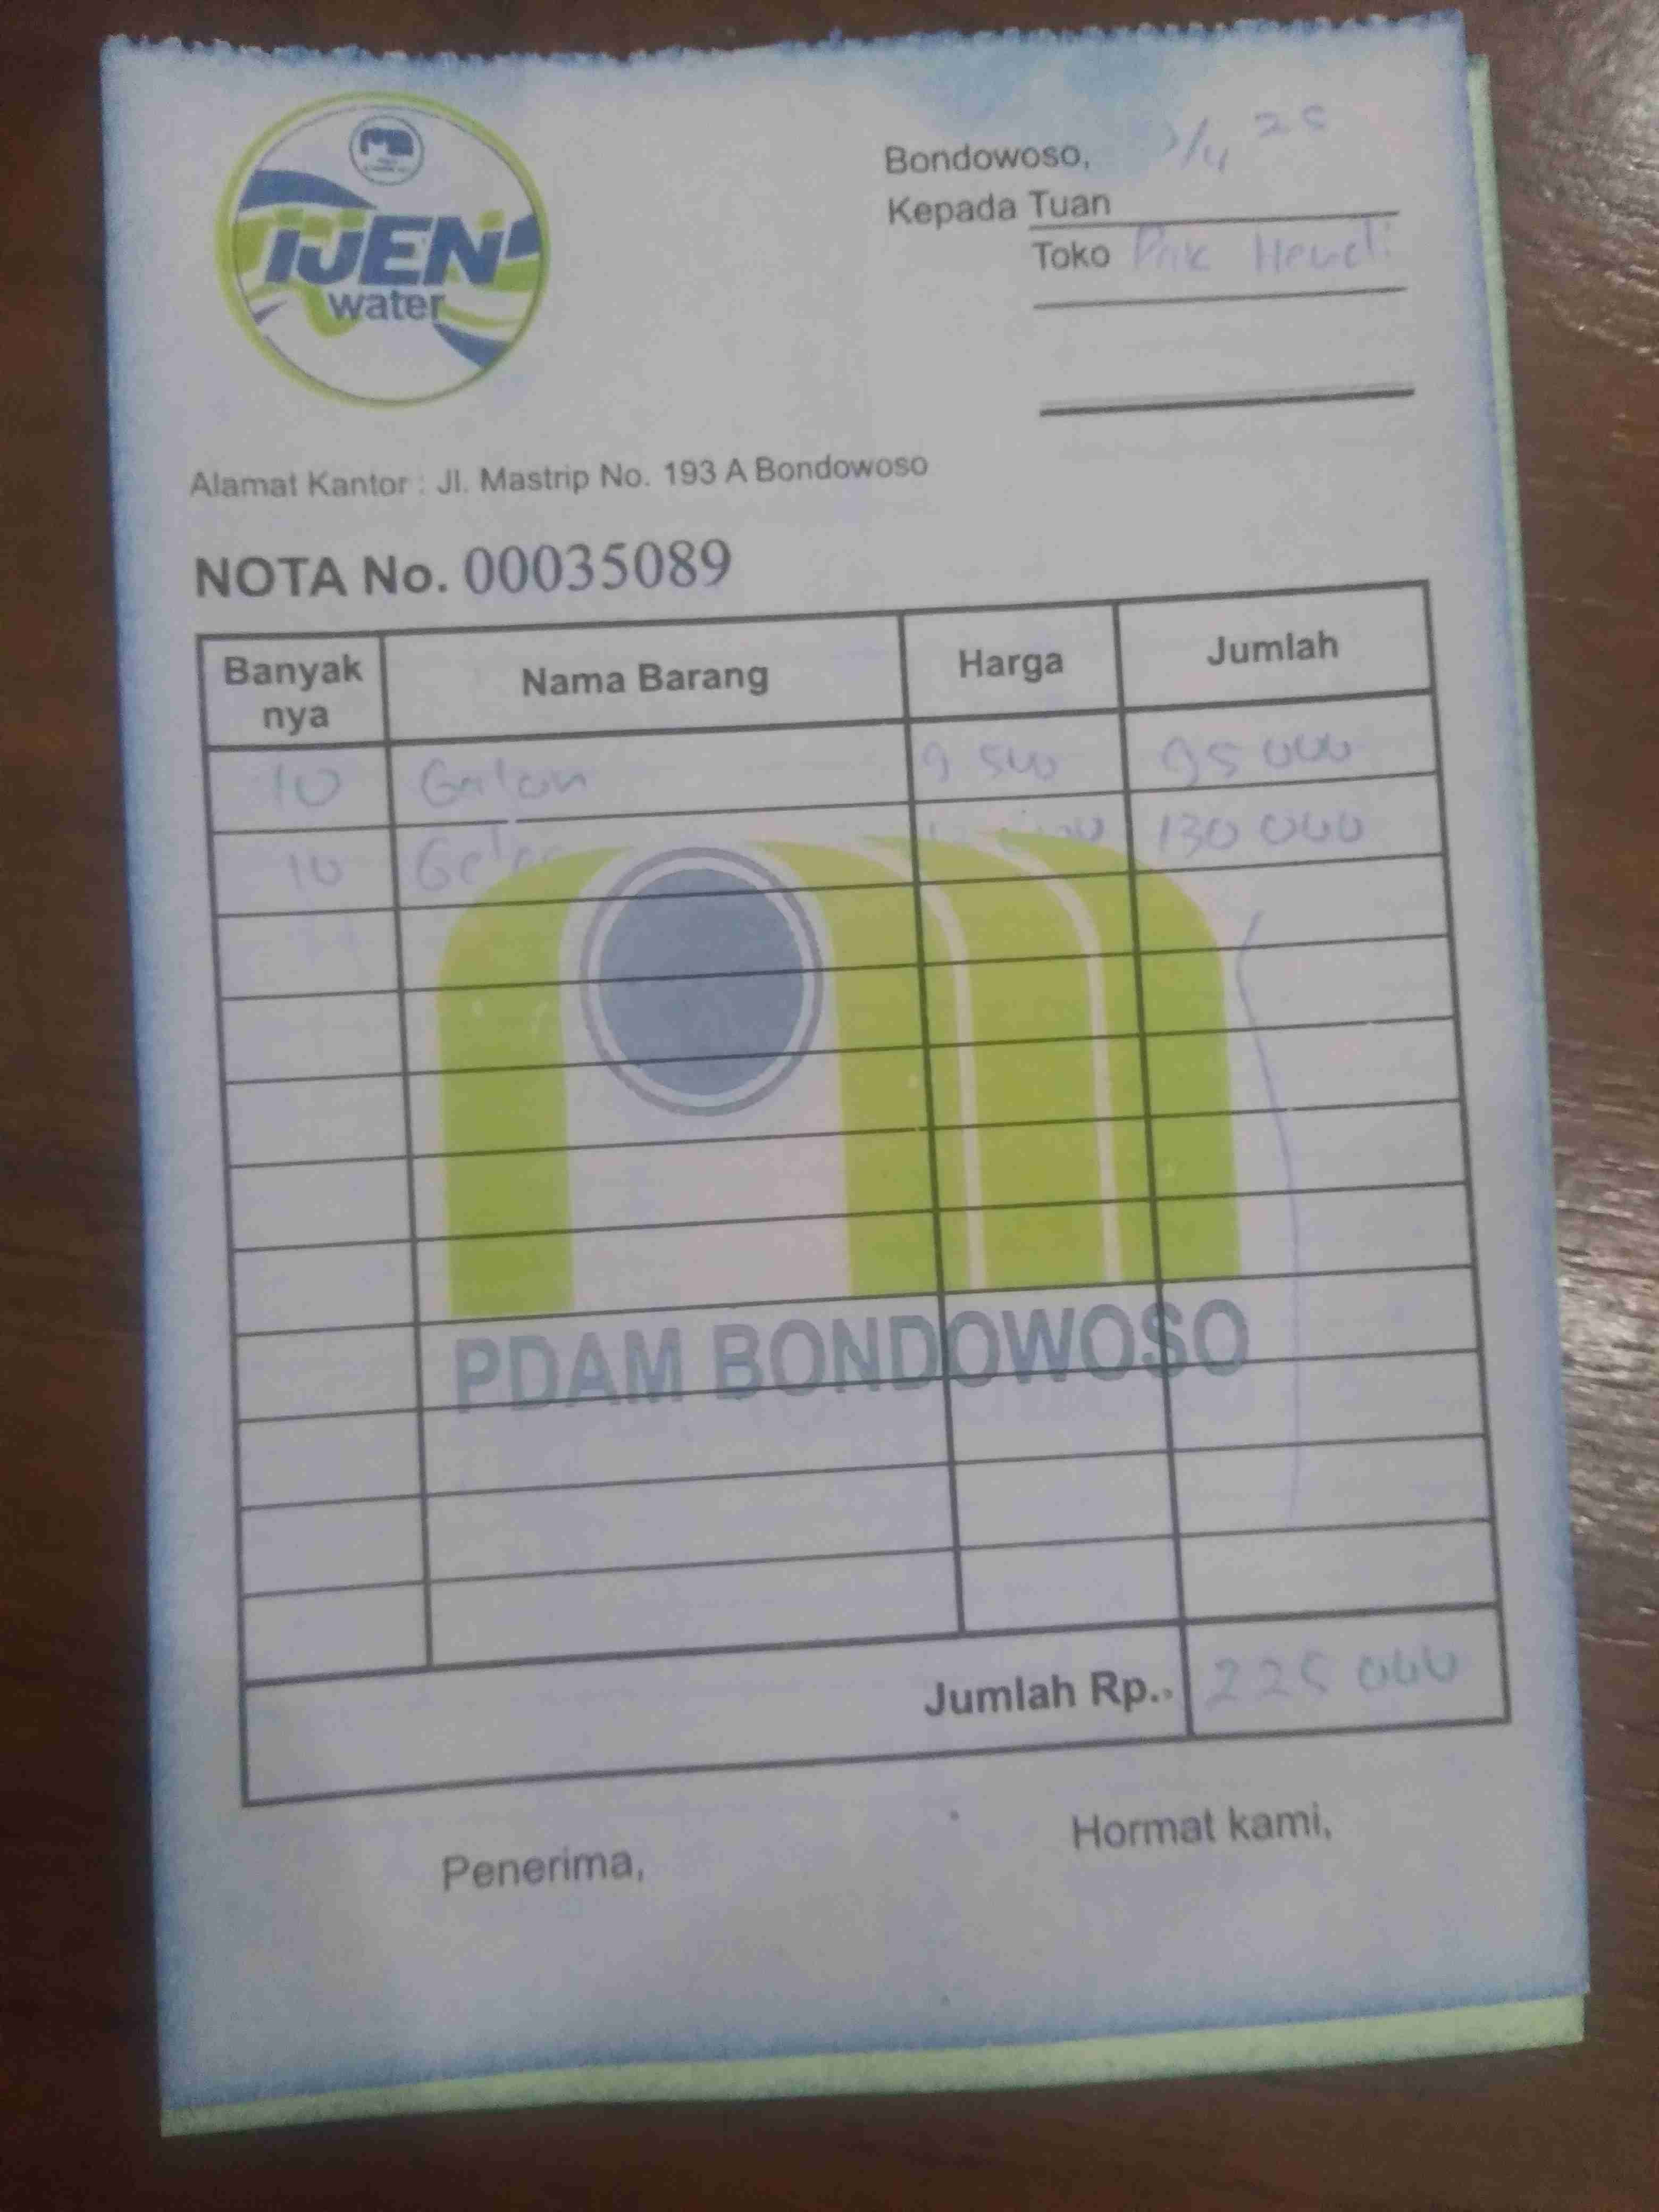 IJEN
water
Bondowoso, /4 25
Kepada Tuan
Toko Pak Hendi
Alamat Kantor : Jl. Mastrip No. 193 A Bondowoso
NOTA No. 00035089
Banyak nya Nama Barang Harga Jumlah
10 Galon 9 500 95 000
10 130 000
PDAM BONDOWOSO
Jumlah Rp.. 225 000
Penerima, Hormat kami,